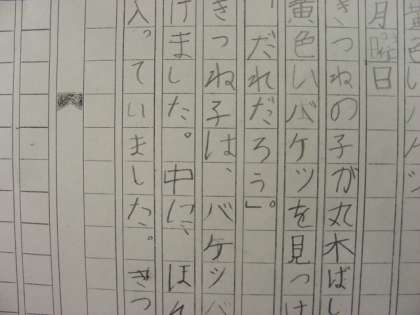 黄色いバケツ
月曜日
きつねの子が丸木ばし
黄色いバケツを見つけ
「だれだろう」。
きつね子は、バケツバ
けました。中に、ほん
入っていました。きつ